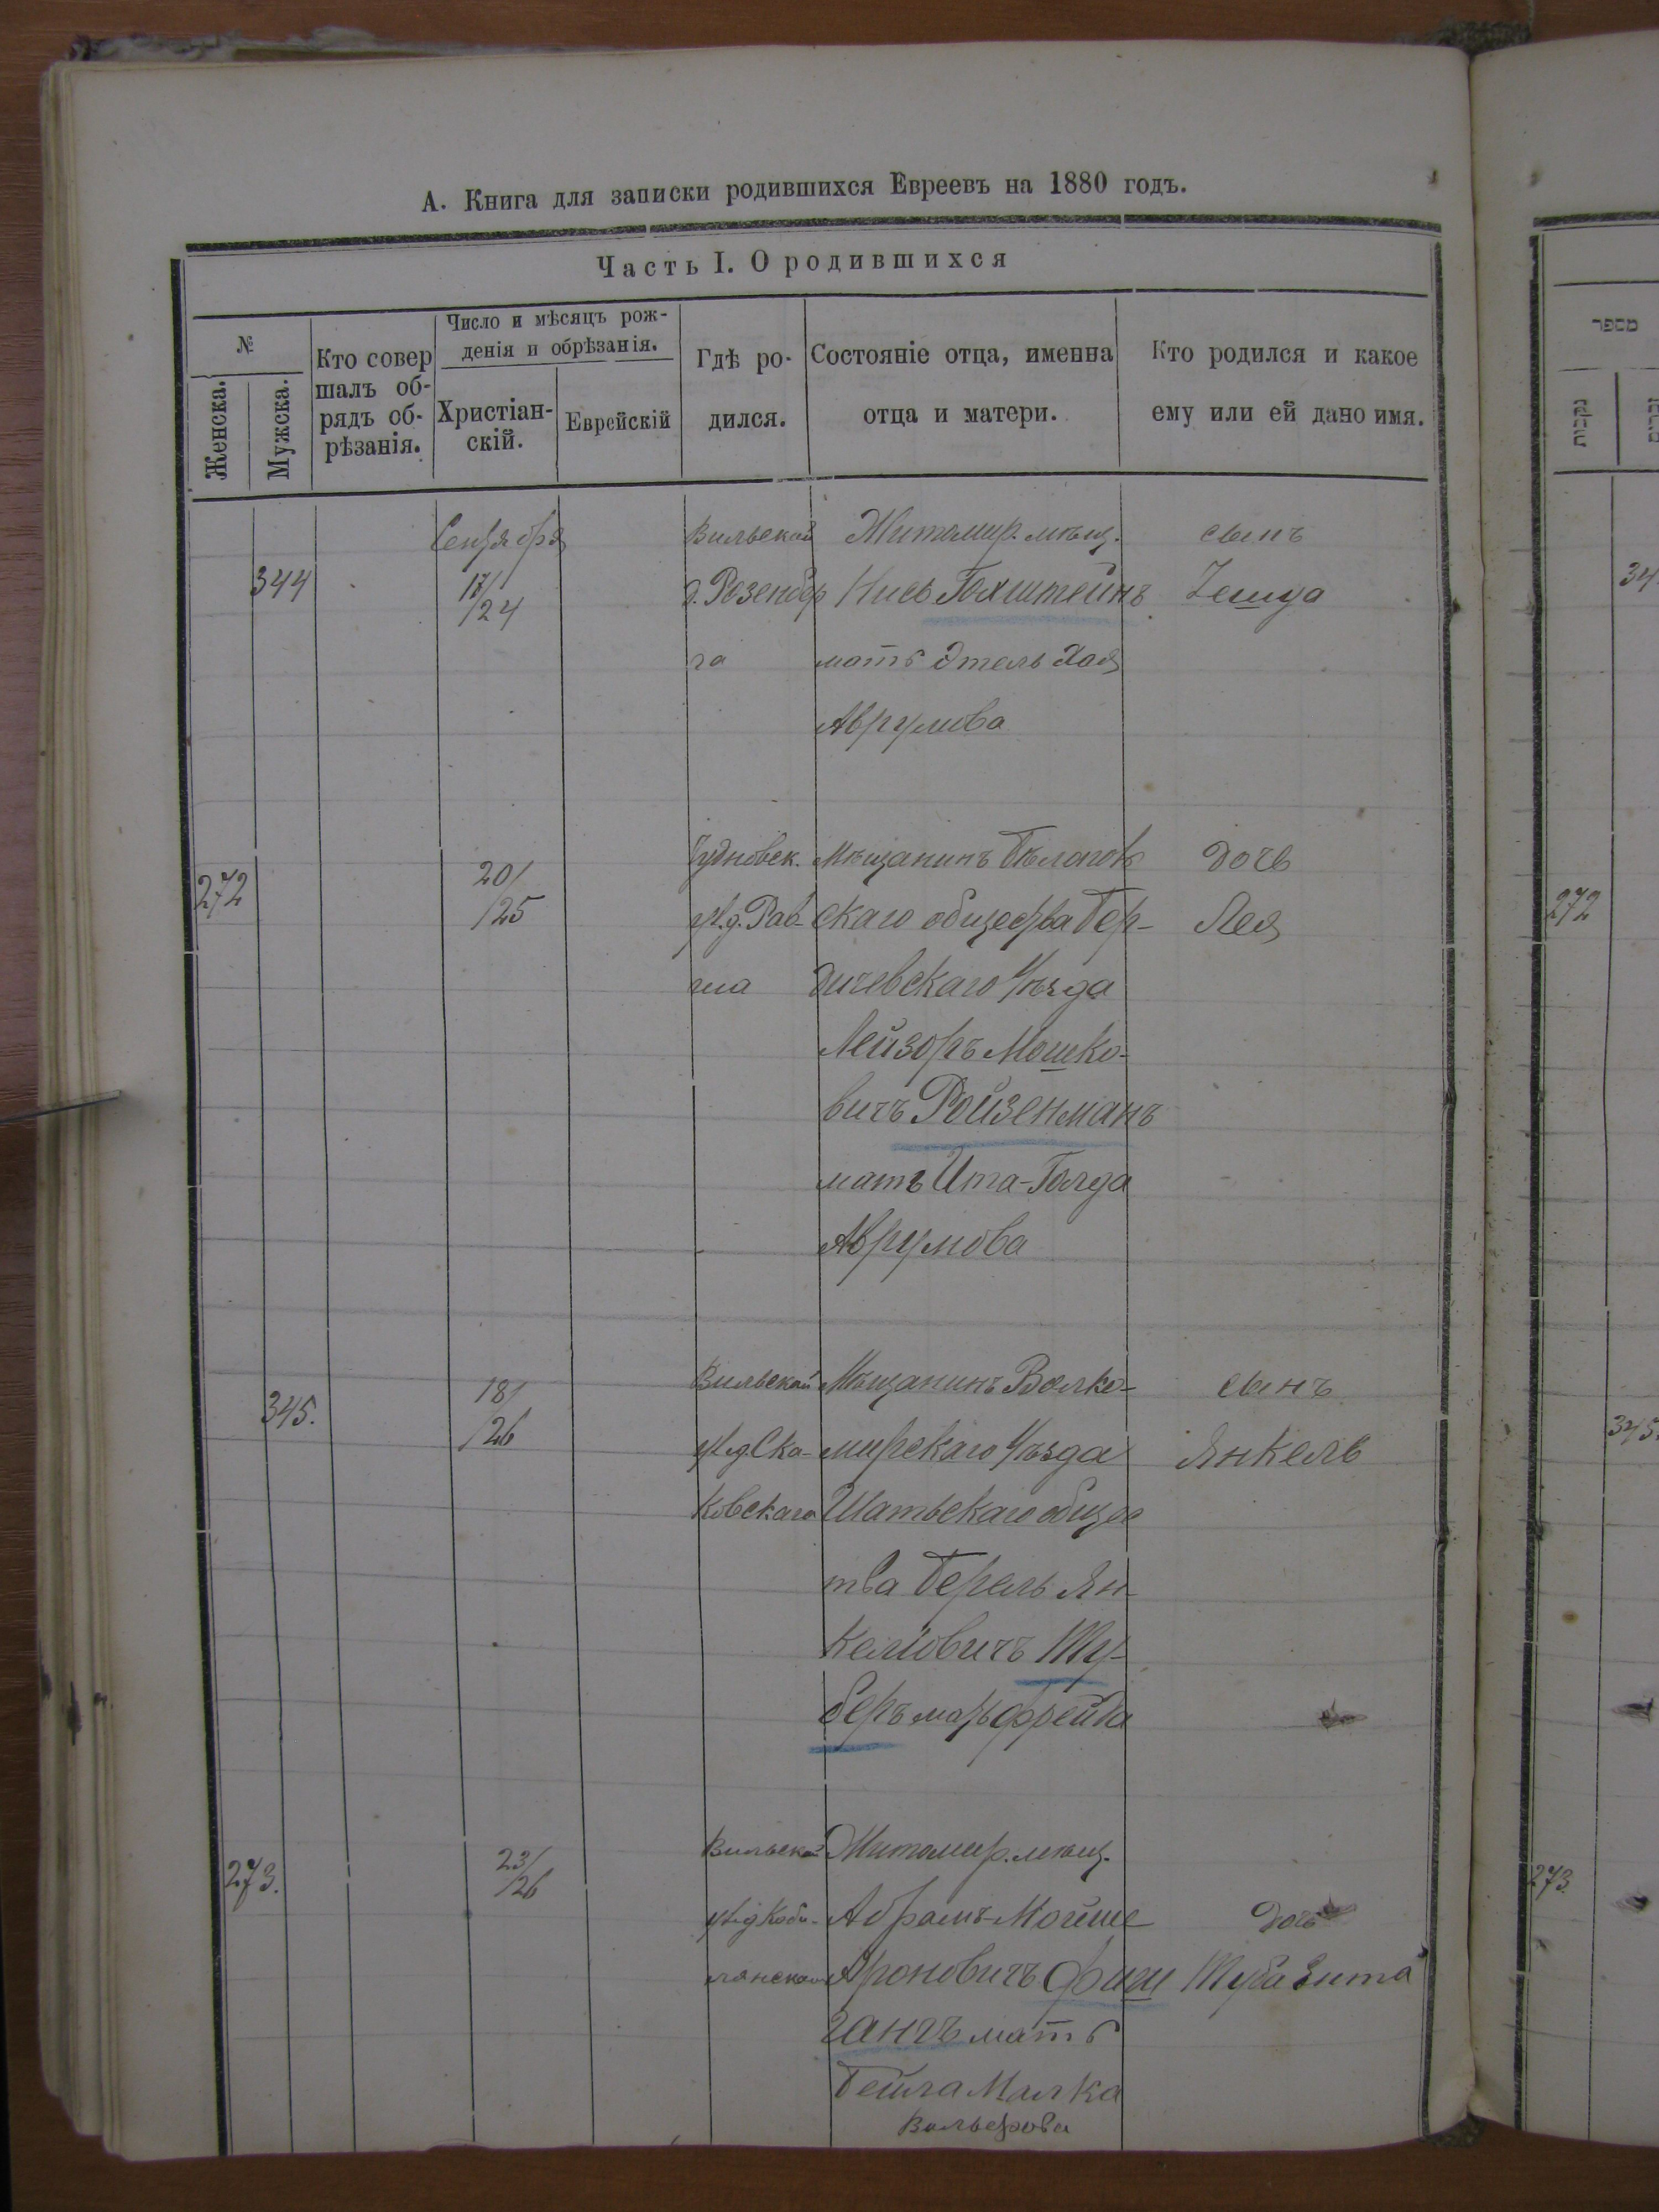 А. Книга для записки родившихся Евреевъ на 1880 годъ.
Часть I. О родившихся
№
Женска.
Мужска.
Кто совер
шалъ об-
рядъ об-
рѣзанія.
Число и мѣсяцъ рож-
денія и обрѣзанія.
Христіан-
скій.
Еврейскій
Гдѣ ро-
дился.
Состояніе отца, именна
отца и матери.
Кто родился и какое
ему или ей дано имя.
מספר
נקבות
זכרים
344
Сентября
17/
/24
Вильской
д. Розенбер
га
Житомир. мѣщ.
Нисъ Гохштейнъ
мать Этель Хая
Аврумова
сынъ
Зешуа
34
272
20/
/25
Чудновск.
ул. д. Рав-
Мѣщанинъ Бѣлагов
скаго общества Бер-
дичевскаго уѣзда
Лейзоръ Мошко-
вичъ Ройзенманъ
мать Ита-Голда
Аврумова
дочь
Лея
272
345.
18/
/26
Вильской
ул. д. Ска-
ковскаго
Мѣщанинъ Волко-
мирскаго уѣзда
Шатьскаго общес
тва Берель Ян-
келіовичъ Ту-
беръ мать Фрейда
сынъ
Янкель
345.
273.
23/
/26
Вильской
ул. д. Коби-
лянскаго
Житомир. мѣщ.
Абрамъ-Мойше
Ароновичъ Фиш
гангъ мать
Бейла Малка
Вольфова
дочь
Туба Зита
273.